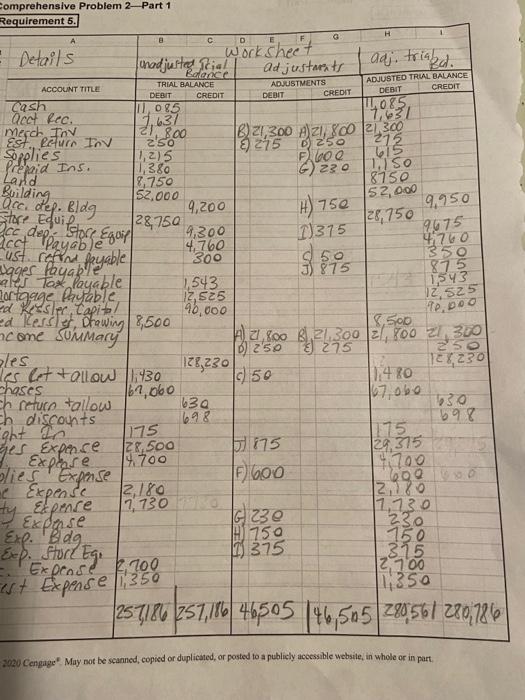 Comprehensive Problem 2—Part 1
Requirement 5.
A B C D E F G H I
Details Worksheet
Unadjusted Trial Balance adjustments adj. trial Bal.
ACCOUNT TITLE TRIAL BALANCE ADJUSTMENTS ADJUSTED TRIAL BALANCE
DEBIT CREDIT DEBIT CREDIT DEBIT CREDIT
Cash 11,085 11,085
acct Rec. 7,631 7,631
merch Inv 21,800 B) 21,300 A) 21,800 21,300
Est. Return Inv 250 E) 275 D) 250 275
Supplies 1,215 F) 600 615
Prepaid Ins. 1,380 G) 230 1,150
Land 8,750 8750
Building 52,000 52,000
acc. dep. Bldg 9,200 H) 750 9,950
Store Equip 28,750 28,750
acc dep - Store Equip 9,300 I) 375 9675
Acct Payable 4,760 4,760
ust. refund Payable 300 C) 50 350
wages Payable J) 875 875
ales Tax Payable 1,543 1543
ortgage Payable 12,525 12,525
ed Kessler, Capital 90,000 90,000
ed Kessler, Drawing 8,500 8,500
ncome SUMMary A) 21,800 B) 21,300 21,800 21,300
D) 250 E) 275 250
les 128,230 128,230
les Ret + allow 1,430 C) 50 1,480
chases 67,060 67,060
ch return + allow 630 630
ch discounts 698 698
ght In 175 175
ges Expense 28,500 J) 875 29,375
Expense 4,700 4,700
plies Expense F) 600 600
e Expense 2,180 2,180
ty Expense 7,730 7,730
Expense G) 230 230
Exp. Bldg H) 750 750
Exp. Store Eq. I) 375 375
Expense 2,700 2,700
est Expense 1,350 1,350
257,186 257,186 46,505 46,505 280,561 280,786
2020 Cengage®. May not be scanned, copied or duplicated, or posted to a publicly accessible website, in whole or in part.